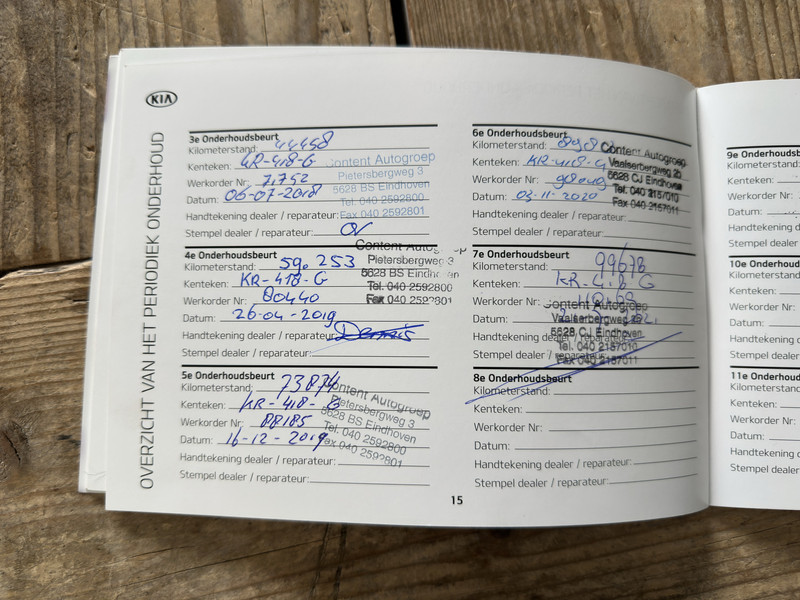 KIA
OVERZICHT VAN HET PERIODIEK ONDERHOUD
3e Onderhoudsbeurt
Kilometerstand: 44458
Kenteken: KR-418-G
Werkorder Nr: 7.752
Datum: 06-07-2018
Handtekening dealer / reparateur:
Stempel dealer / reparateur:
Content Autogroep
Pietersbergweg 3
5628 BS Eindhoven
Tel. 040 2592800
Fax 040 2592801
4e Onderhoudsbeurt
Kilometerstand: 59.253
Kenteken: KR-418-G
Werkorder Nr: 80440
Datum: 26-04-2019
Handtekening dealer / reparateur: Dennis
Stempel dealer / reparateur:
Content Autog
Pietersbergweg 3
5628 BS Eindh
Tel. 040 2592800
Fax 040 2592801
5e Onderhoudsbeurt
Kilometerstand: 73874
Kenteken: KR-418-G
Werkorder Nr: 88185
Datum: 16-12-2019
Handtekening dealer / reparateur:
Stempel dealer / reparateur:
Content Autogroep
Pietersbergweg 3
5628 BS Eindhoven
Tel. 040 2592800
Fax 040 2592801
6e Onderhoudsbeurt
Kilometerstand:
Kenteken: KR-418-G
Werkorder Nr:
Datum: 03-11-2020
Handtekening dealer / reparateur:
Stempel dealer / reparateur:
Content Autogroep
Vaalserbergweg 20
5628 CJ Eindhoven
Tel. 040 2157010
Fax 040 2157011
7e Onderhoudsbeurt
Kilometerstand: 99678
Kenteken: KR-418-G
Werkorder Nr:
Datum:
Handtekening dealer / reparateur:
Stempel dealer / reparateur:
Content Autogroep
Vaalserbergweg 20
5628 CJ Eindhoven
Tel. 040 2157010
Fax 040 2157011
8e Onderhoudsbeurt
Kilometerstand:
Kenteken:
Werkorder Nr:
Datum:
Handtekening dealer / reparateur:
Stempel dealer / reparateur:
15
9e Onderhoudsb
Kilometerstand:
Kenteken:
Werkorder Nr:
Datum:
Handtekening d
Stempel dealer
10e Onderhoud
Kilometerstand
Kenteken:
Werkorder Nr:
Datum:
Handtekening
Stempel deale
11e Onderho
Kilometersta
Kenteken:
Werkorder N
Datum:
Handtekenin
Stempel dea